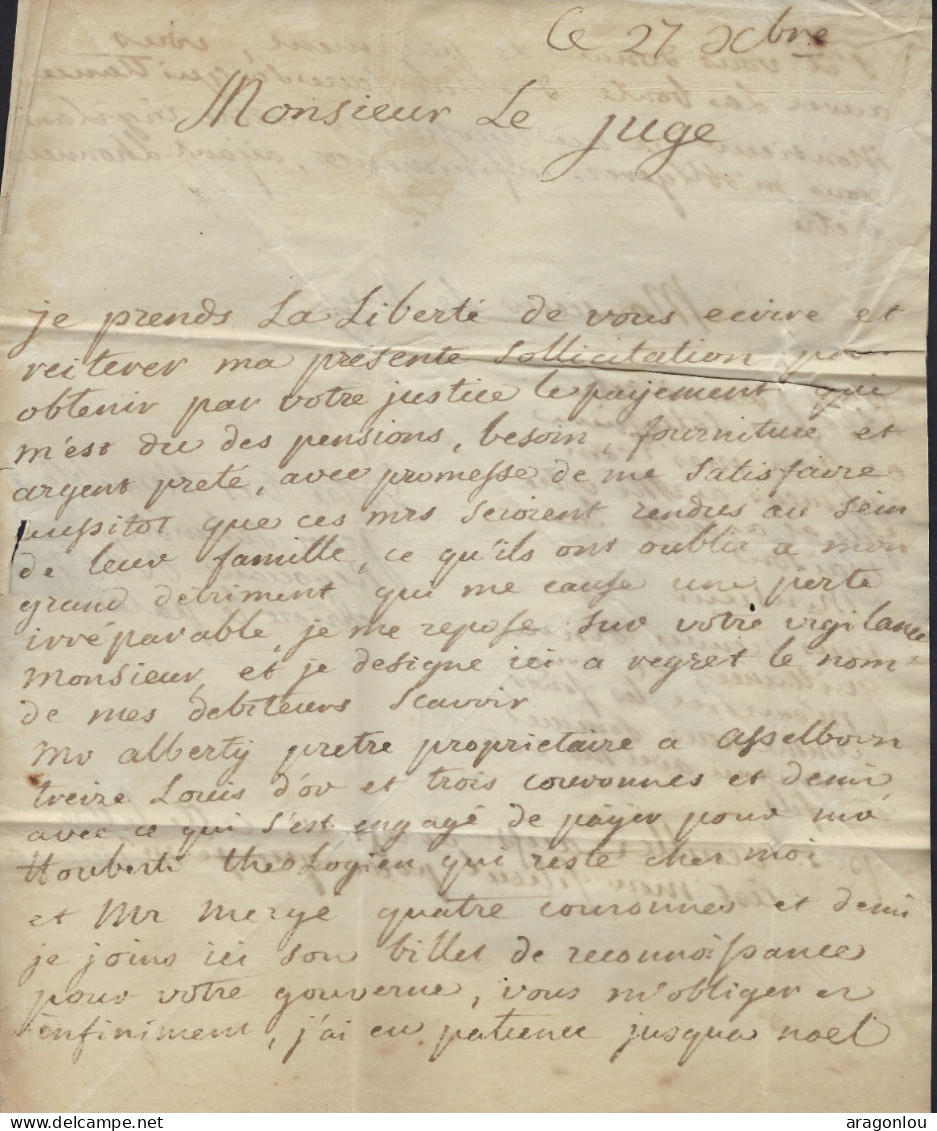 Ce 27 8cbre
Monsieur Le juge
je prends La Liberté de vous ecrire et
reiterer ma presente sollicitation pour
obtenir par votre justice le payement qui
m'est du des pensions, besoin, fourniture et
argent preté, avec promesse de me satisfaire
aussitot que ces mrs seroient rendus au sein
de leur famille, ce qu'ils ont oublié a mon
grand detriment qui me cause une perte
irréparable, je me repose sur votre vigilance
monsieur, et je designe ici a regret le nom
de mes debiteurs scavoir
Mr alberty pretre proprietaire a asselborn
treize Louis d'or et trois couronnes et demi
avec ce qui s'est engagé de payer pour mr
houberti theologien qui reste cher moi
et Mr merge quatre couronnes et demi
je joins ici son billet de reconnoissance
pour votre gouverne, vous m'obligerer
infiniment, j'ai eu patience jusqua noel
www.delcampe.net
aragonlou